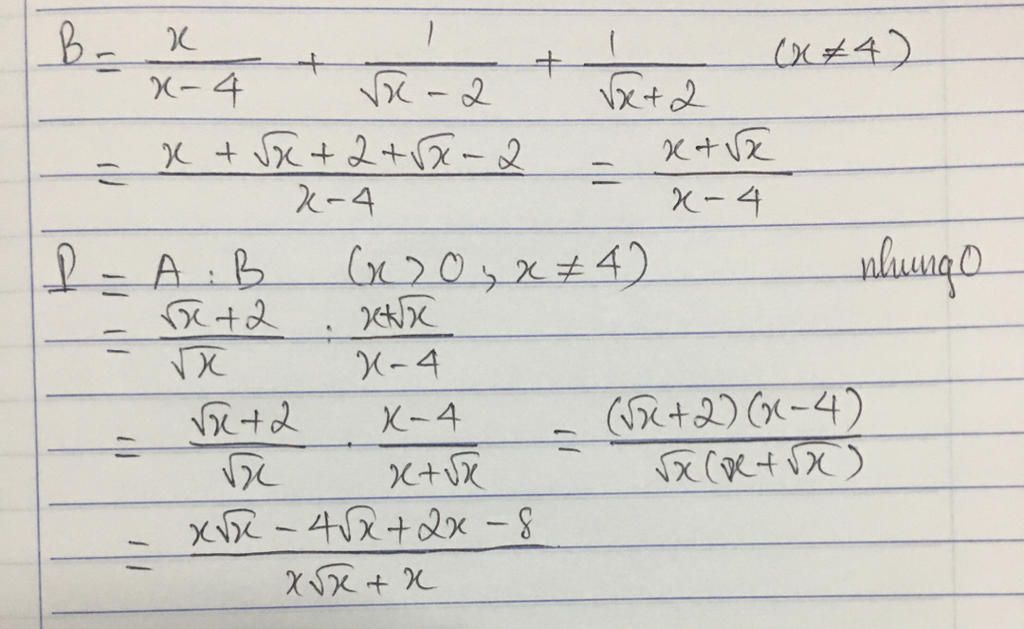 B = x/(x-4) + 1/(√x - 2) + 1/(√x + 2) (x ≠ 4)
= (x + √x + 2 + √x - 2)/(x-4) = (x + √x)/(x-4)
P = A : B (x > 0, x ≠ 4) nhungo
= (√x + 2)/√x : (x + √x)/(x-4)
= (√x + 2)/√x . (x-4)/(x + √x) = (√x + 2)(x-4)/(√x(x + √x))
= (x√x - 4√x + 2x - 8)/(x√x + x)